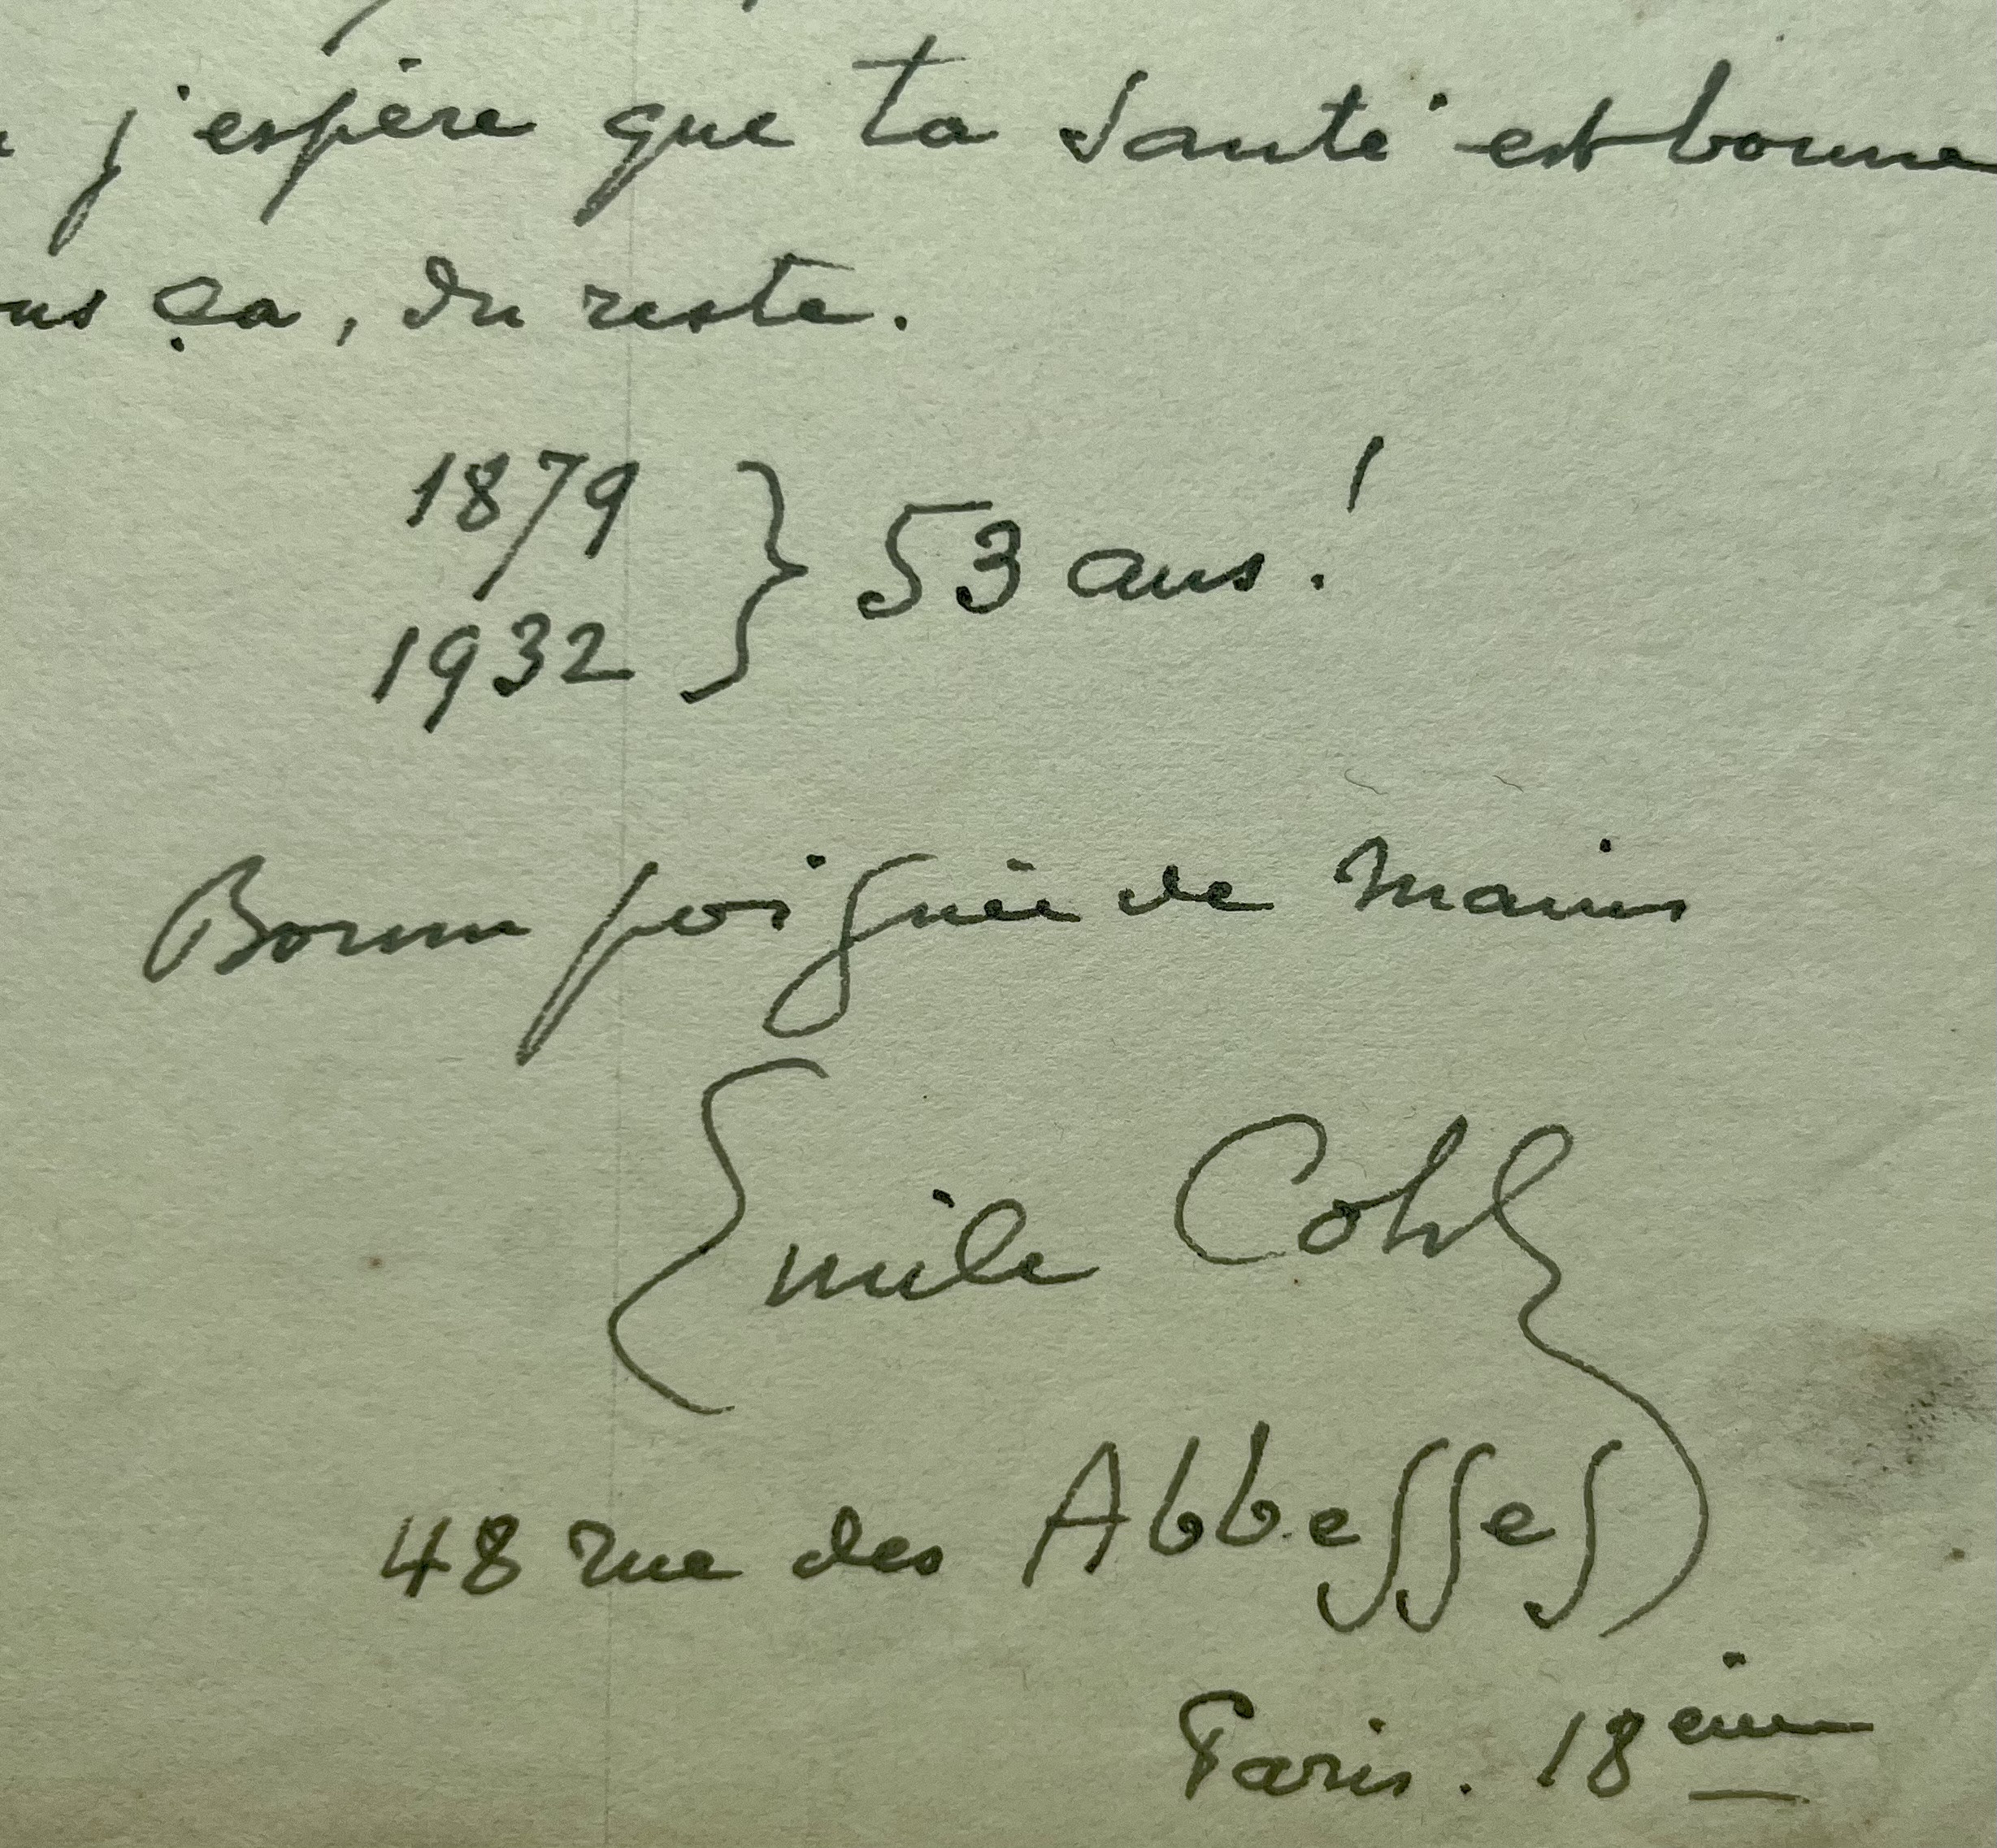 j'espère que ta santé est bonne
ça, du reste.
1879
1932 } 53 ans !
Bonne poignée de mains
Emile Cohl
48 rue des Abbesses
Paris. 18ème